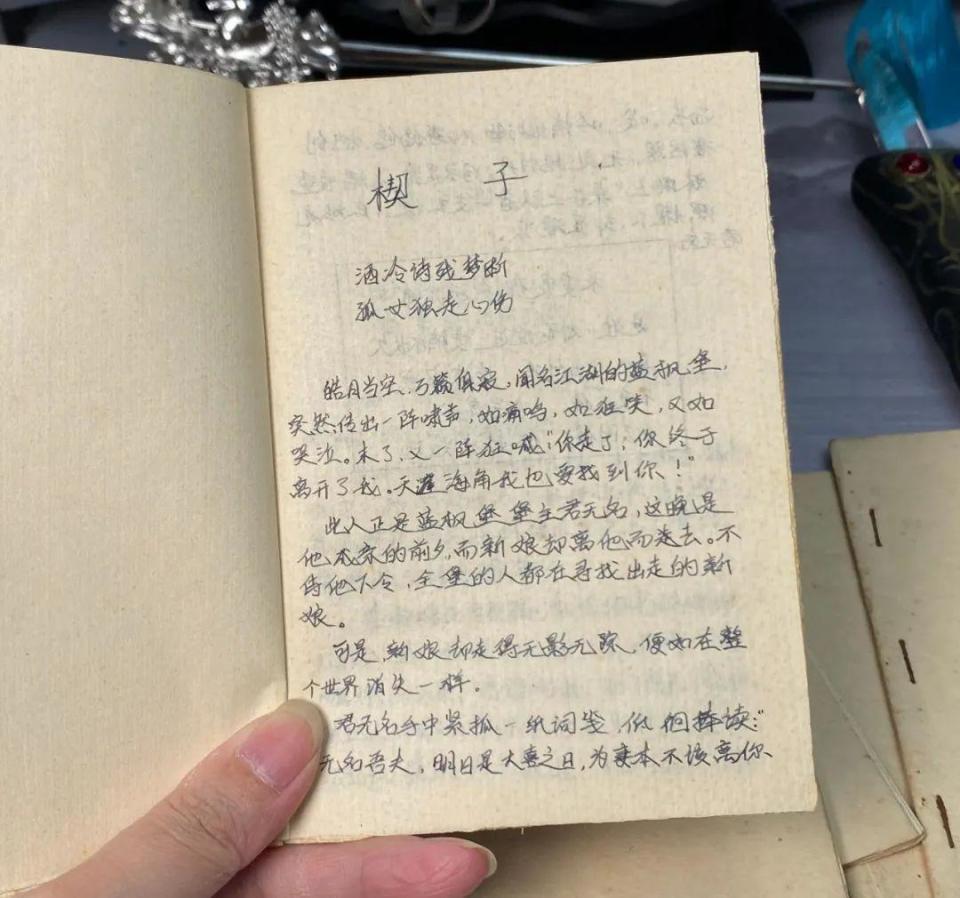 楔 子
酒冷诗残梦断
孤女独走心伤
皓月当空，万籁俱寂，闻名江湖的蓝枫堡，
突然传出一阵啸声，如痛呜，如狂笑，又如
哭泣。末了，又一阵狂喊：“你走了；你终于
离开了我。天涯海角我也要找到你！”
此人正是蓝枫堡堡主君无名，这晚是
他成亲的前夕，而新娘却离他而远去。不
待他下令，全堡的人都在寻找出走的新
娘。
可是新娘却走得无影无踪，便如在整
个世界消失一样。
君无名手中紧抓一纸词笺，低徊捧读：“
无名吾夫，明日是大喜之日，为妻本不该离你